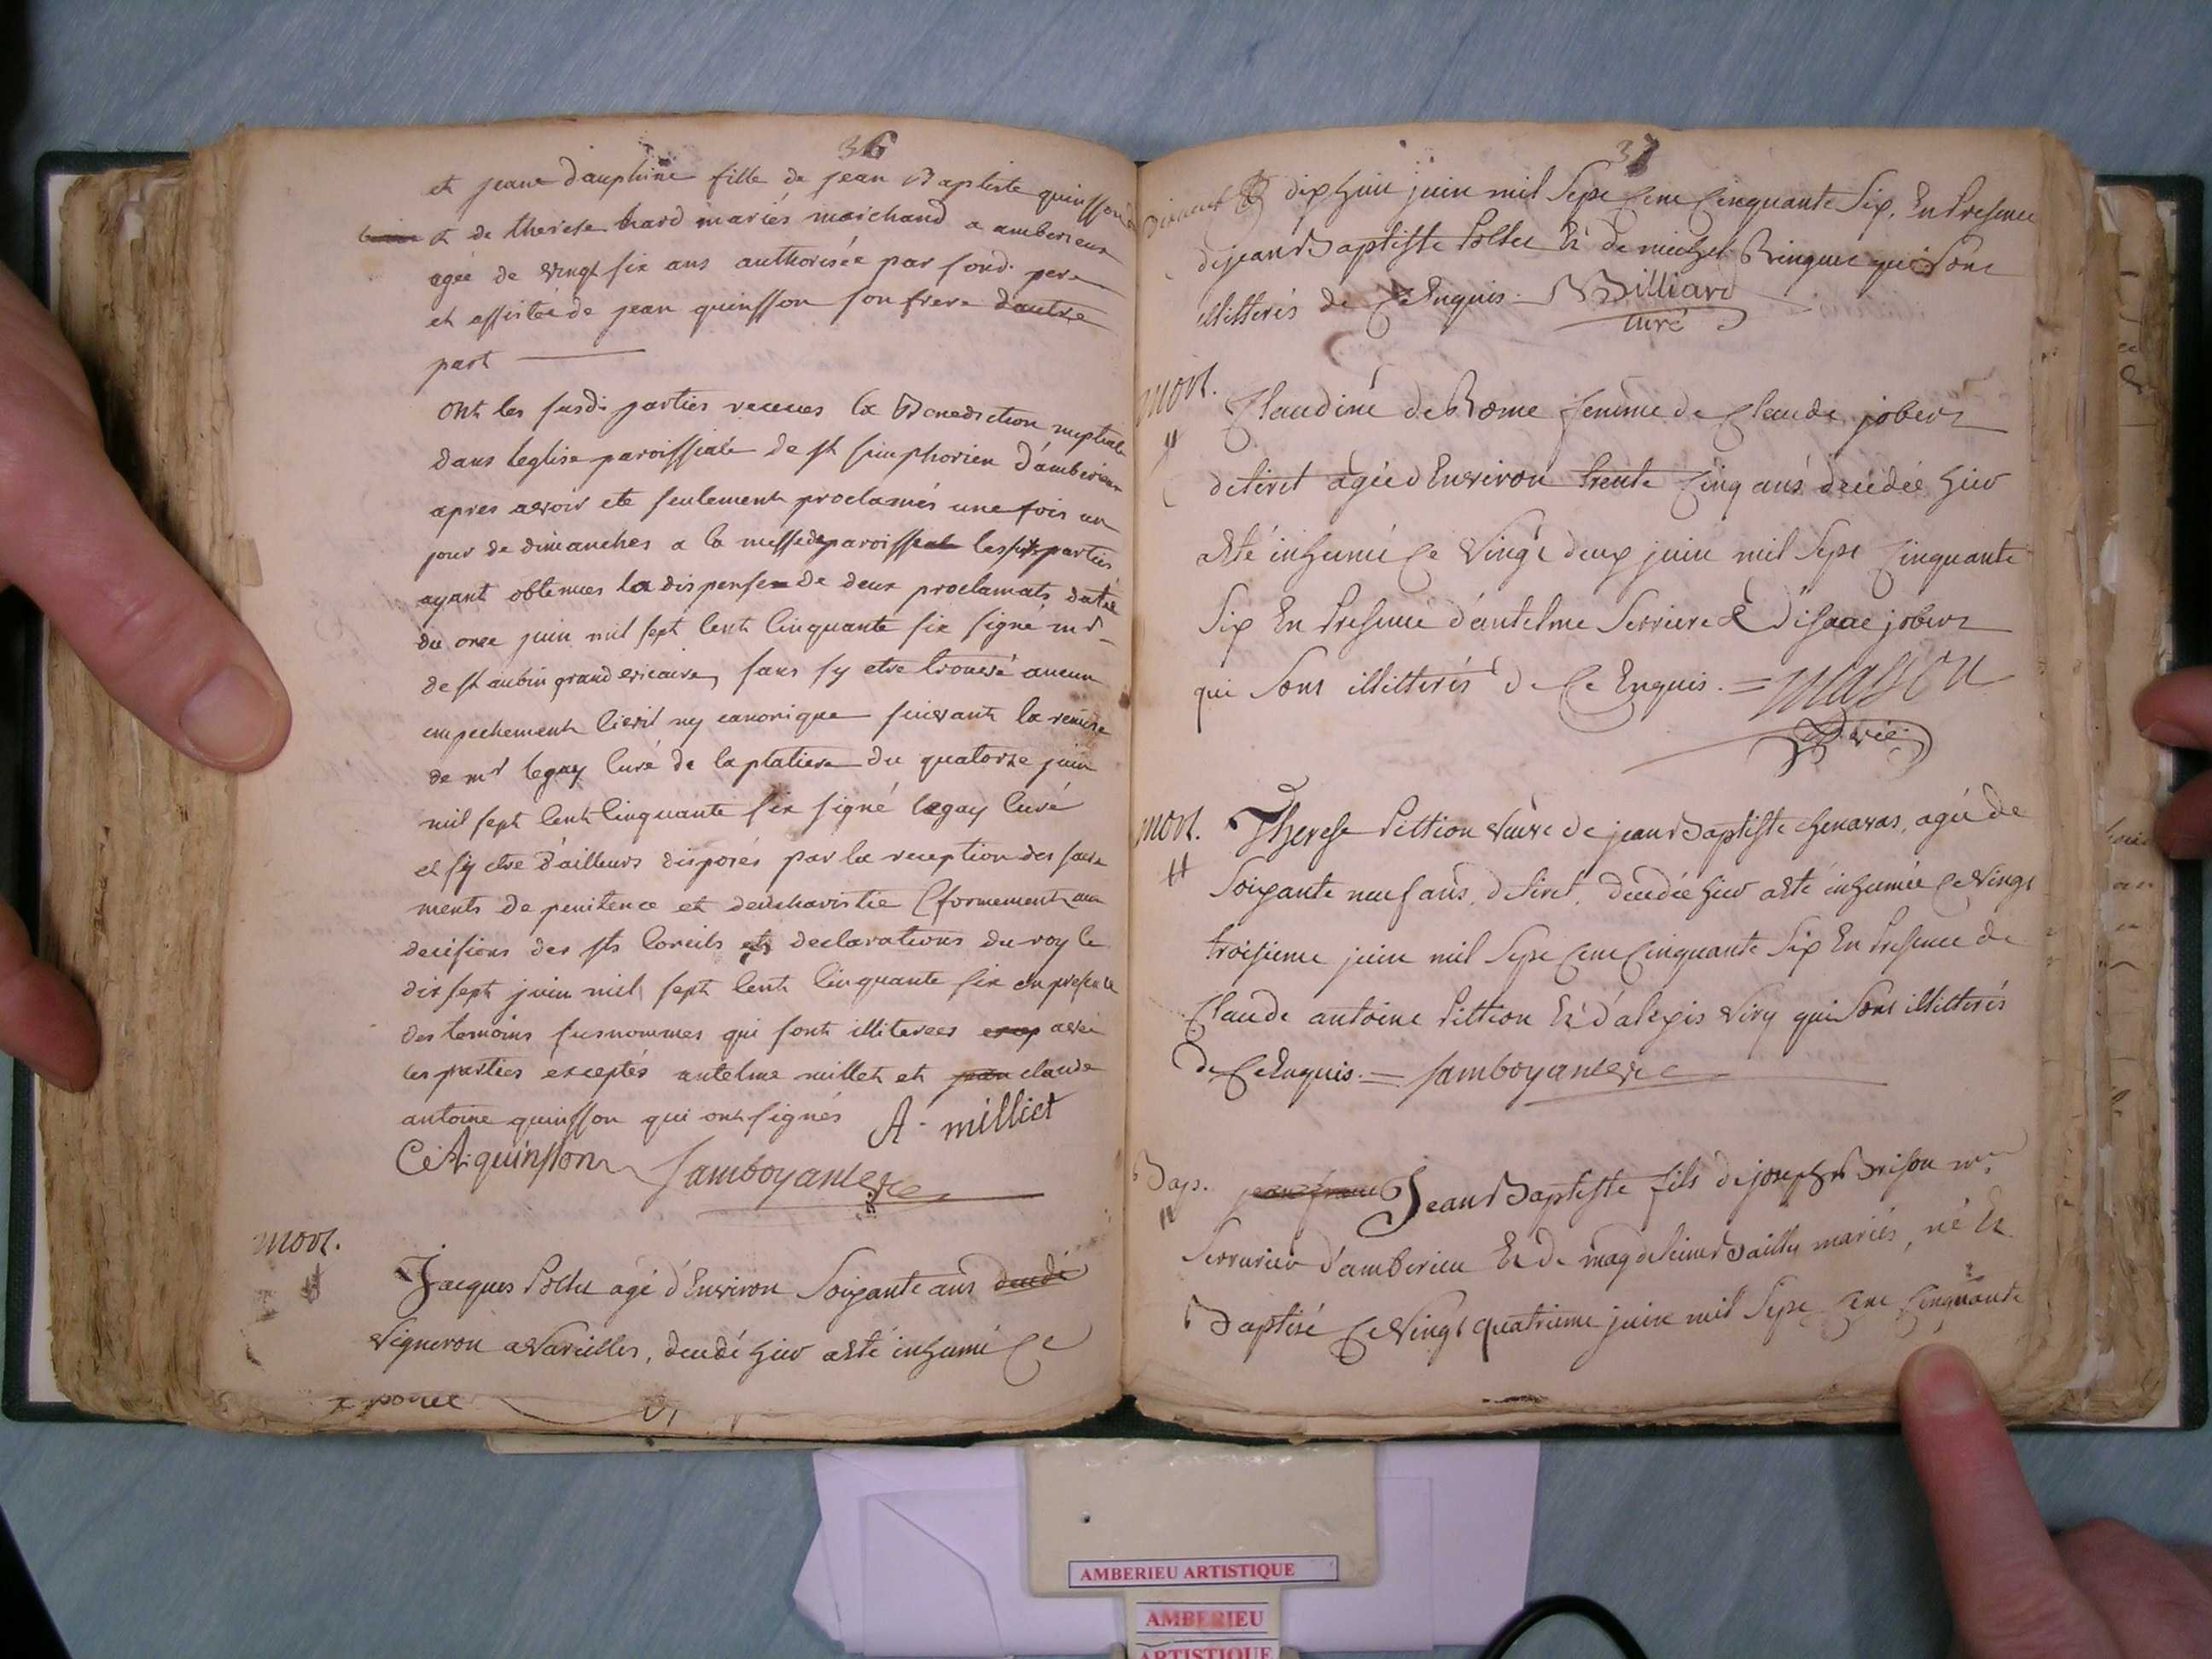 36
et jeane dauphine fille de jean Baptiste quinsson
et de therese hard mariés marchand a amberieux
agée de vingt six ans authorisée par sond. pere
et assistée de jean quinsson son frere d'autre
part
ont les susd. parties receues la Benediction nuptiale
dans leglise paroissiale de st simphorien d'amberieux
apres avoir ete seulement proclamés une fois un
jour de dimanches a la messe de paroisse les parties
ayant obtenues la dispense de deux proclamats datée
du onze juin mil sept cent cinquante six signé mr
de st aubin grand vicaire, sans sy etre trouvé aucun
empechement civil ny canonique suivant la remise
de mr legay curé de la platiere du quatorze juin
mil sept cent cinquante six signé legay curé
et sy etre d'ailleurs disposés par la reception des sacre
ments de penitence et deucharistie Cformement aux
decisions des sts conciles et declarations du roy le
dix sept juin mil sept cent cinquante six en presence
des temoins susnommes qui sont illiterees avec
les parties exceptés antelme millet et claude
antoine quinsson qui ont signés A. milliet
C: A: quinsson Jamboyant vic
mort.
Jacques Poltu agé d'Environ Soixante ans
vigneron a Vareilles, decedé hier a Eté inhumé Ce
37
dix huit juin mil Sept Cent Cinquante Six, En Presence
de jean Baptiste Poltu Et de michel Ringuet qui Sont
illitterés de Ce Enquis. Billiard
curé
mort.
Claudine de Rome femme de Claude jobert
de tiret agée d'Environ trente Cinq ans decedée hier
a Eté inhumée Ce Vingt deux juin mil Sept Cinquante
Six En Presence d'antelme Serriere & d'isaac jobert
qui Sont illitterés de Ce Enquis. = masson
Vic
mort.
Therese Pittion veuve de jean Baptiste chenavas, agée de
Soixante neuf ans, de tiret, decedée hier a Eté inhumée Ce Vingt
troisieme juin mil Sept Cent Cinquante Six En Presence de
Claude antoine Pittion Et d'alexis Viry qui Sont illitterés
de Ce Enquis. = Jamboyant vic
Bap.
Jean Baptiste fils de joseph Brison me
Serrurier d'amberieu Et de magdeleine Bailly mariés, né Et
Baptisé Ce Vingt quatrieme juin mil Sept Cent Cinquante
AMBERIEU ARTISTIQUE
AMBERIEU
ARTISTIQUE